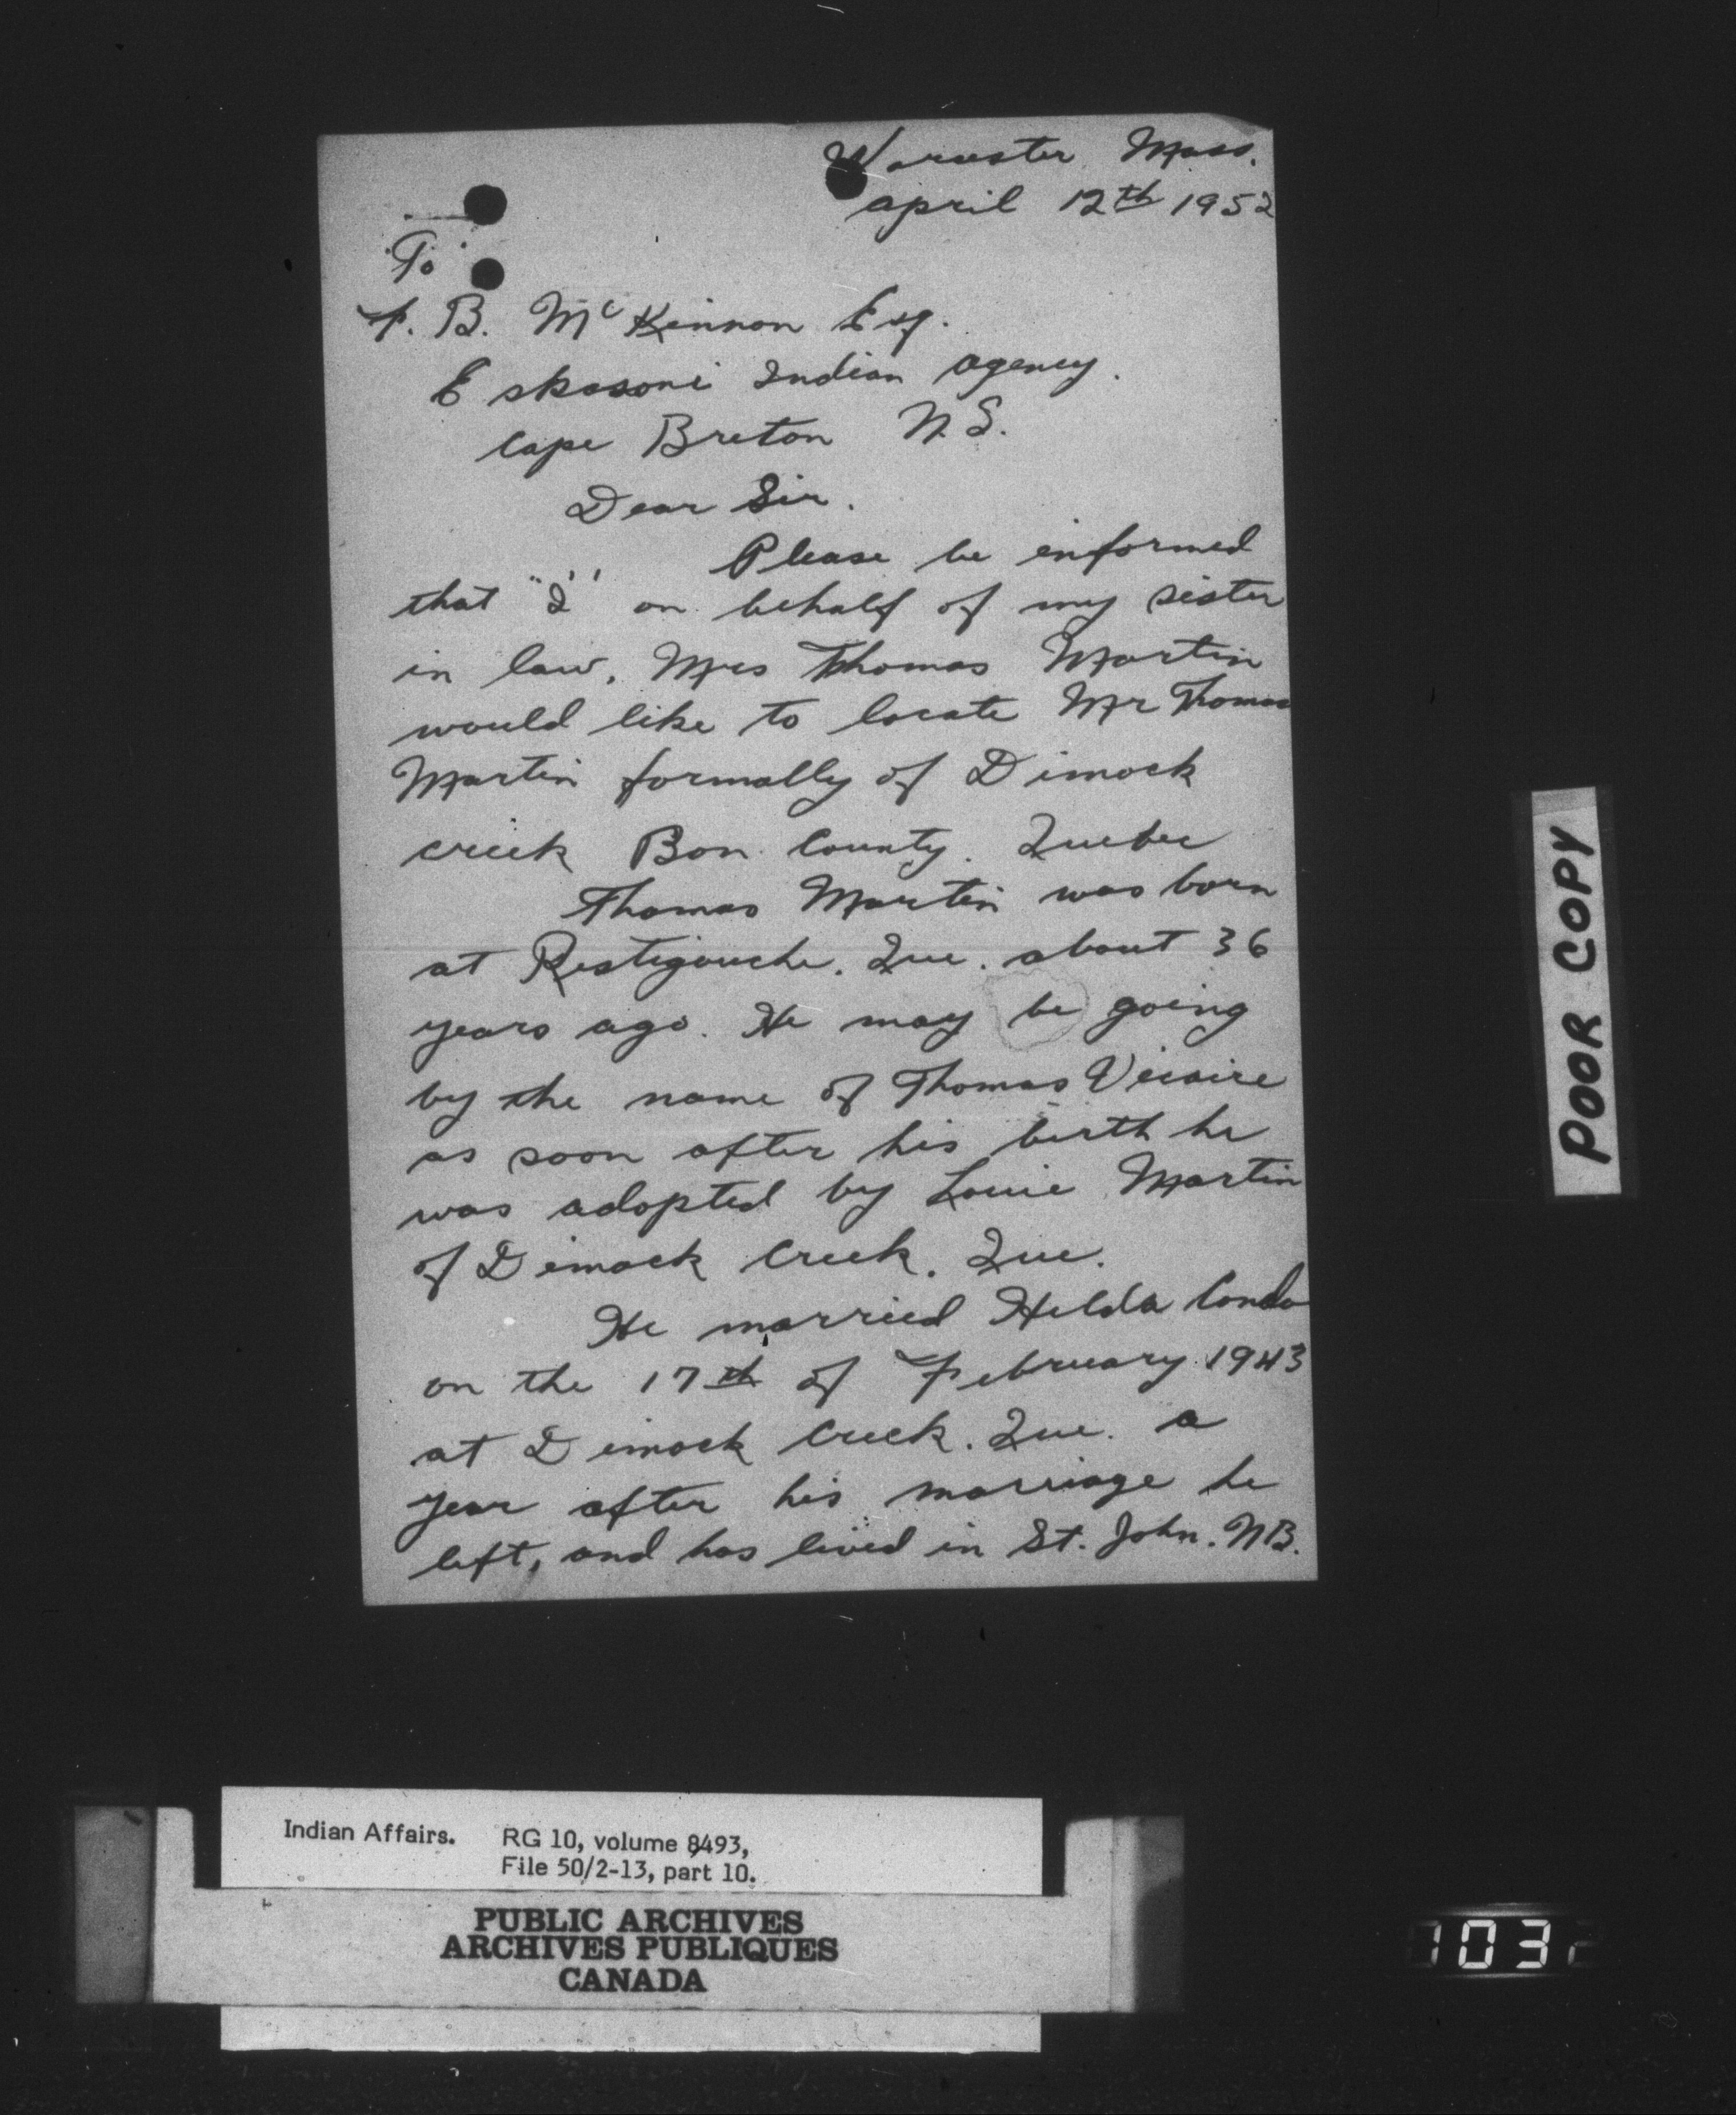 Worcester Mass.
april 12th 1952
To
F. B. McKinnon Esq.
Eskasoni Indian agency.
Cape Breton N.S.
Dear Sir.
Please be informed
that "I" on behalf of my sister
in law, Mrs Thomas Martin
would like to locate Mr Thomas
Martin formally of Dimock
creek Bon. County. Quebec
Thomas Martin was born
at Restigouche. Que. about 36
years ago. He may be going
by the name of Thomas Vicaire
as soon after his birth he
was adopted by Louie Martin
of Dimock Creek. Que.
He married Hilda Condo
on the 17th of February 1943
at Dimock Creek. Que. a
year after his marriage he
left, and has lived in St. John. NB.
POOR COPY
Indian Affairs. RG 10, volume 8493,
File 50/2-13, part 10.
PUBLIC ARCHIVES
ARCHIVES PUBLIQUES
CANADA